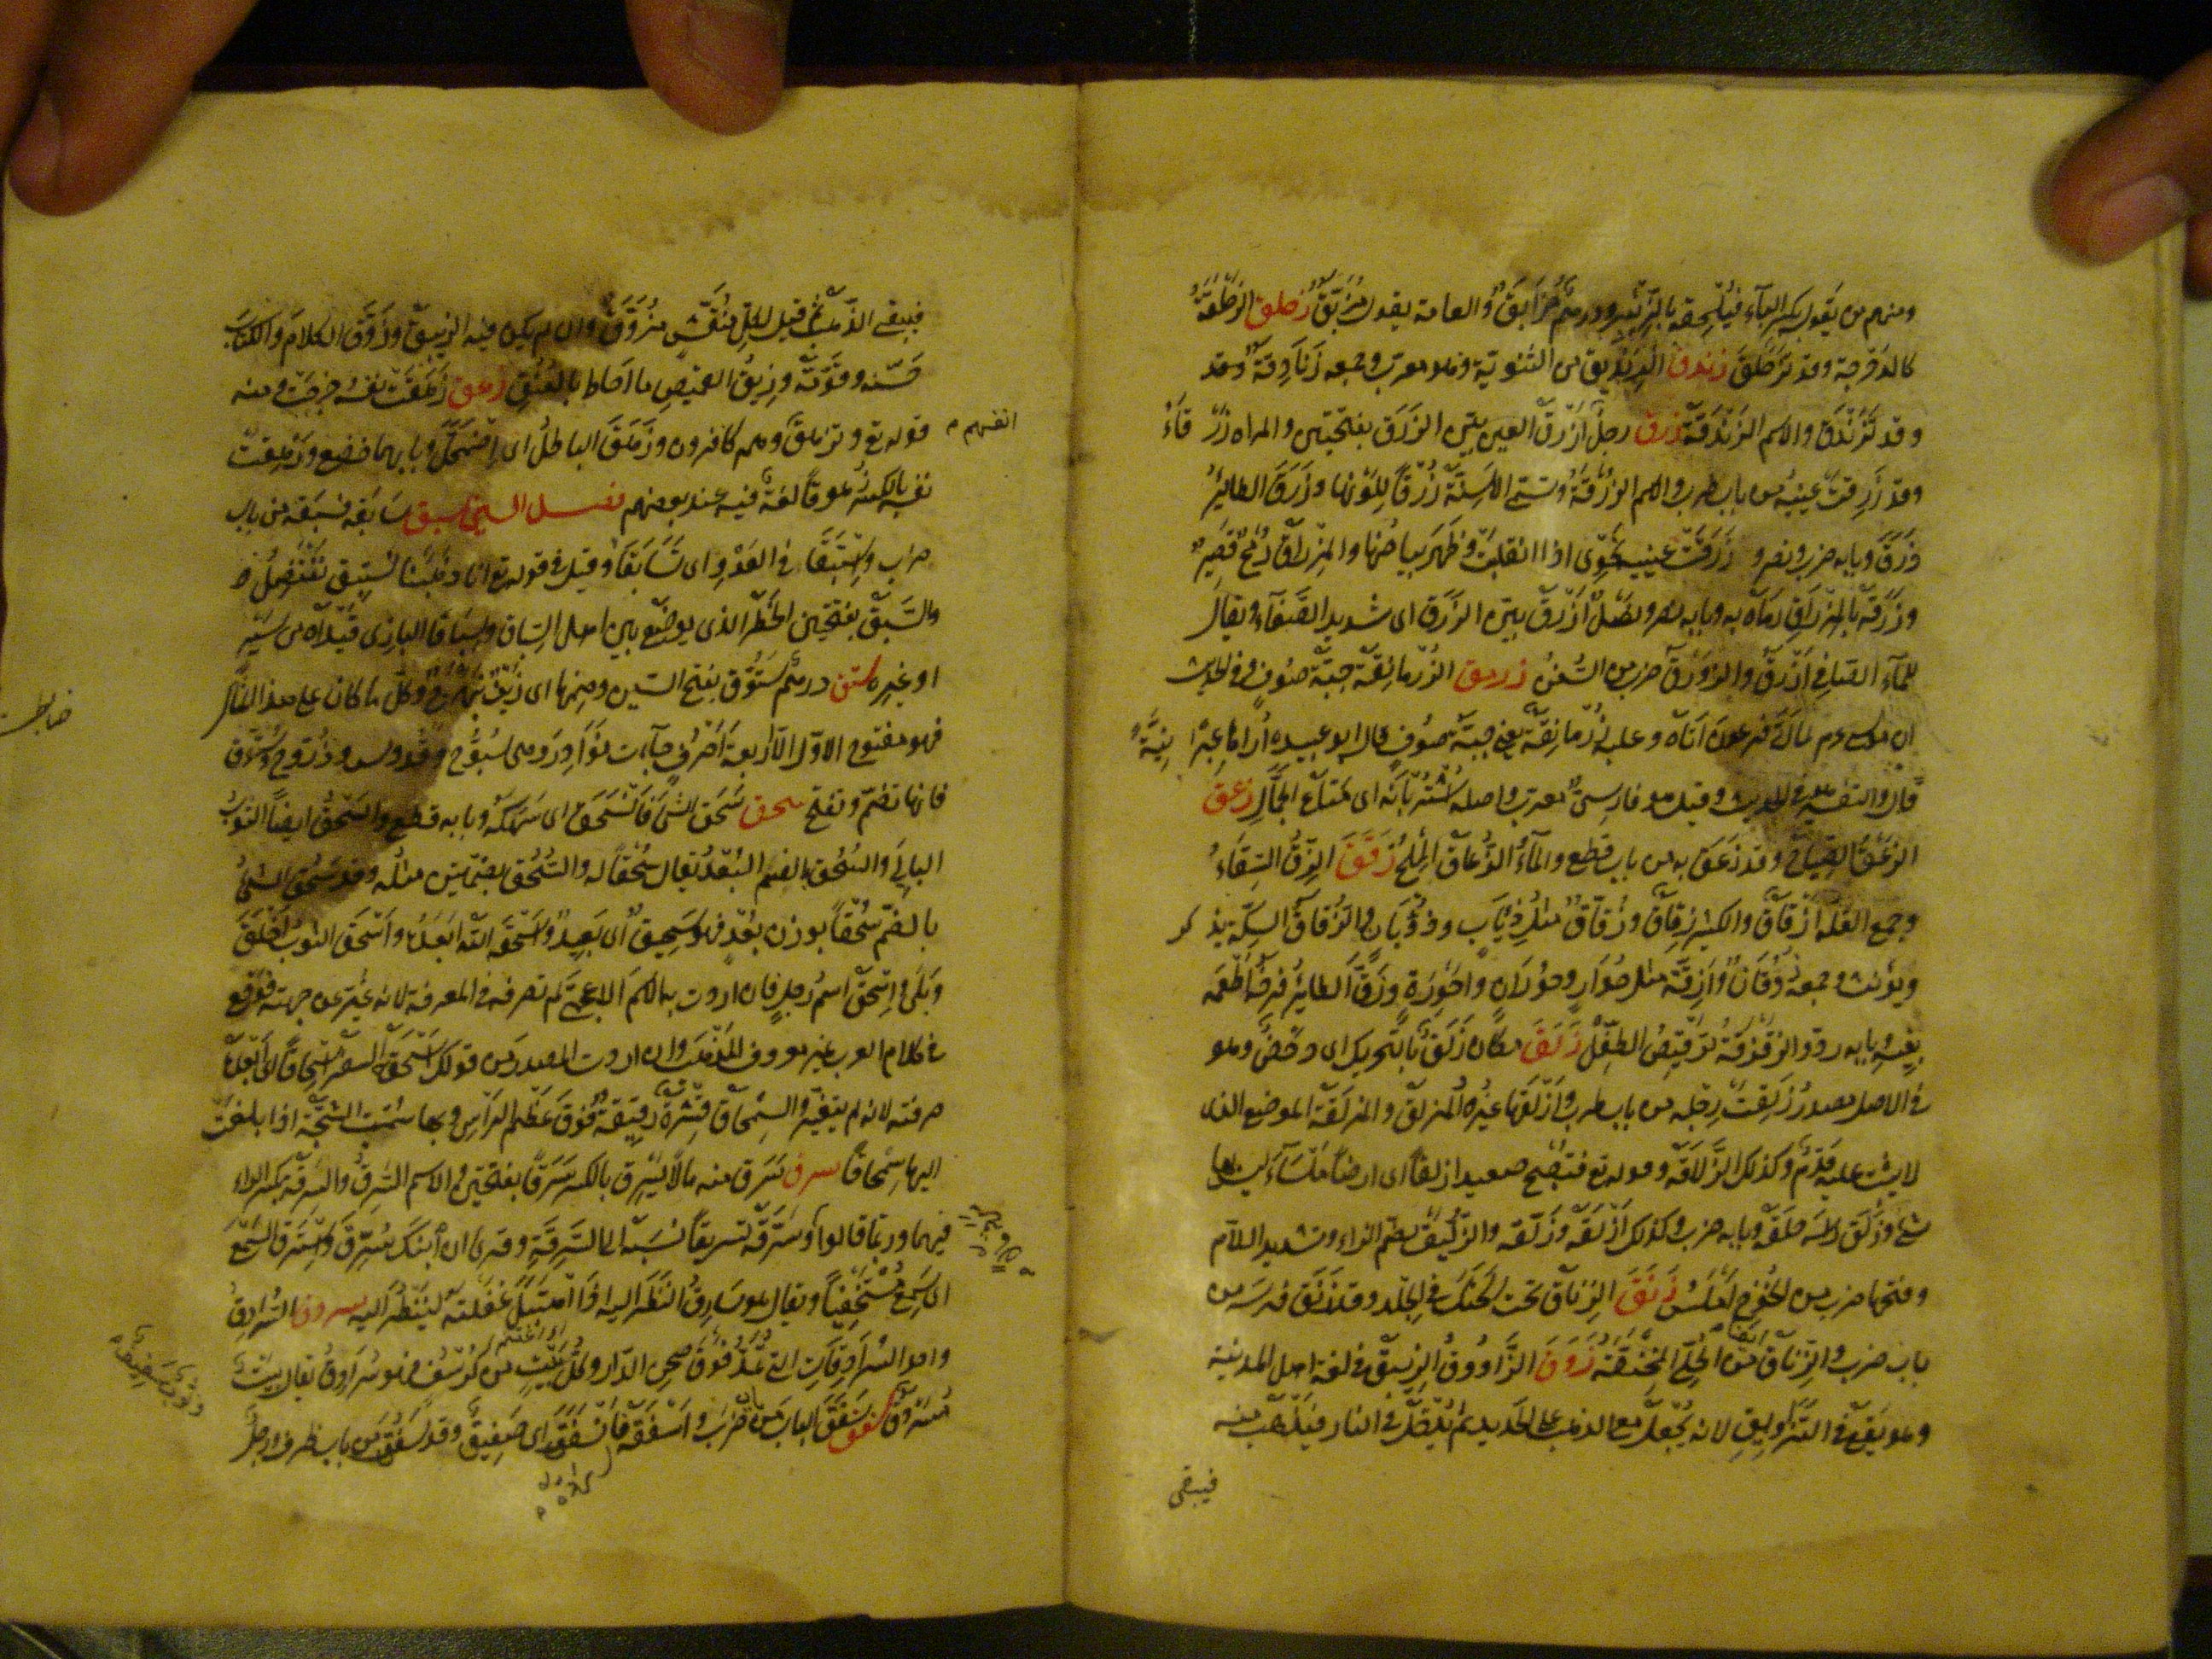 ومنهم من يقول بكسر الباء فيلحقه بالزئبر ودرهم مزأبق والعامة يقول مزبق زحلق الزحلقة
كالدحرجة وقد تزحلق زندق الزنديق من الثنوية وهو معرب وجمعه زنادقة وقد
وقد تزندق والاسم الزندقة زرق رجل أزرق العين بين الزرق بفتحتين والمراه زرقاء
وقد زرقت عينه من باب طرب والاسم الزرقة وتسمى الاسنة زرقا للونها وزرق الطائر
ذرق وبابه ضرب ونصر و زرقت عينه نحوى اذا انقلبت وظهر بياضها والمزراق رمح قصير
وزرقه بالمزراق رماه به وبابه نصر ونصل أزرق بين الزرق اى شديد الصفاء ويقال
للماء الصافى أزرق والزورق ضرب من السفن زرمق الزرمانقة جبة صوف وفى الحديث
ان موسى عم لما أتى فرعون اتاه وعليه زرمانقة يعنى جبة صوف قال ابو عبيده أراها عبرانية
قال والتفسير فى الحديث وقيل هو فارسى معرب واصله اشتربانه اى متاع الجمال زعق
الزعق الصياح وقد زعق به من باب قطع والماء الزعاق الملح زقق الزق السقاء
وجمع القلة أزقاق والكثير زقاق وزقاق مثل ذئاب وذؤبان والزقاق السكة يذكر
ويؤنث وجمعه زقان وأزقة مثل حوار وحوران واحورة وزق الطائر فرخه أطعمه
بفيه وبابه رد والزقزقة ترقيص الطفل زلق مكان زلق بالتحريك اى دحض وهو
فى الاصل مصدر زلقت رجله من باب طرب وأزلقها غيره والمزلق والمزلقة الموضع الذى
لا يثبت عليه قدم وكذلك الزلاقة وقوله تع فتصبح صعيدا زلقا اى ارضا ملساء ليس بها
شئ وزلق رأسه حلقه وبابه ضرب وكذلك أزلقه وزلقه والزليق بضم الزاء وتشديد اللام
وفتحها ضرب من الخوخ املس زنق الزناق تحت الحنك فى الجلد وقد زنق فرسه من
باب ضرب والزناق ايضا من الحلى المخنقة زوق الزاووق الزيبق فى لغة اهل المدينة
وهو يقع فى التزاويق لانه يجعل مع الذهب على الحديد ثم يدخل فى النار فيذهب منه
فيبقى
فيبقى الذهب ثم قيل لكل منقش مزوق وان لم يكن فيه الزيبق وزوق الكلام والكتاب
حسنه وقومه وزيق القميص ما احاط بالعنق زهق زهقت نفسه خرجت ومنه
قوله تع وتزهق وهم كافرون وزهق الباطل اى اضمحل وبابهما خضع وزهقت
انفسهم
نفسه بالكسر زهوقا لغة فيه عند بعضهم فصل السين سبق سابقه فسبقه من باب
ضرب واستبقا فى العدو اى تسابقا وقيل فى قوله تع انا ذهبنا نستبق ننتضل
والسبق بفتحتين الخطر الذى يوضع بين اهل السباق وسباقا البازى قيداه من سير
او غيره ستق درهم ستوق بفتح السين وضمها اى زيف بهرج وكل ما كان على هذا المثال
فهو مفتوح الاول الا اربعة احرف جاءت نوادر وهى سبوح وقدوس وذروح وستوق
فانها تضم وتفتح سحق سحق الشئ فانسحق اى سهكه وبابه قطع والسحق ايضا الثوب
البالى والسحق بالضم البعد يقال سحقا له والسحق بضمتين مثله وقد سحق الشئ
بالضم سحقا بوزن بعد فهو سحيق أى بعيد وأسحقه الله ابعده وأسحق الثوب اخلق
وبلى واسحق اسم رجل فان اردت به الاسم الاعجمى لم تصرفه فى المعرفة لانه غير عن جهته فوقع
فى كلام العرب غير معروف المذهب وان اردت المصدر من قولك أسحقه السفر اسحاقا اى ابعده
صرفته لانه لم يتغير والسمحاق قشرة رقيقة فوق عظم الرأس وبها سميت الشجة اذا بلغت
اليها سمحاقا سرق سرق منه مالا يسرق بالكسر سرقا بفتحتين والاسم السرق والسرقة بكسر الراء
فيهما وربما قالوا وسرقه تسريقا نسبه الى السرقة وقرئ ان ابنك سرق واسترق السمع
اى سمع مستخفيا ويقال هو يسارق النظر اليه اذا اهتبل غفلته لينظر اليه سردق السرادق
واحد السرادقات التى تمد فوق صحن الدار وكل بيت من كرسف فهو سرادق يقال بيت
مسردق سفق سفق الباب من باب ضرب وأسفقه فانسفق اى صفيق وقد سفق من باب ظرف ورجل